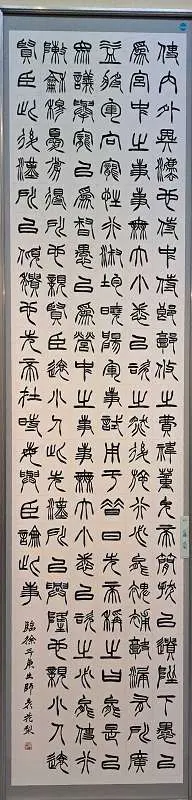 使內外異法也侍中侍郎郭攸之費禕董允先帝簡拔以遺陛下愚以
為宮中之事事無大小悉以咨之然後施行必能裨補闕漏有所廣
益將軍向寵性行淑均曉暢軍事試用于昔日先帝稱之曰能是以
眾議舉寵以為督愚以為營中之事事無大小悉以咨之必能使行
陣和穆優劣得所也親賢臣遠小人此先漢所以興隆也親小人遠
賢臣此後漢所以傾頹也先帝在時每與臣論此事
臨徐三庚出師表